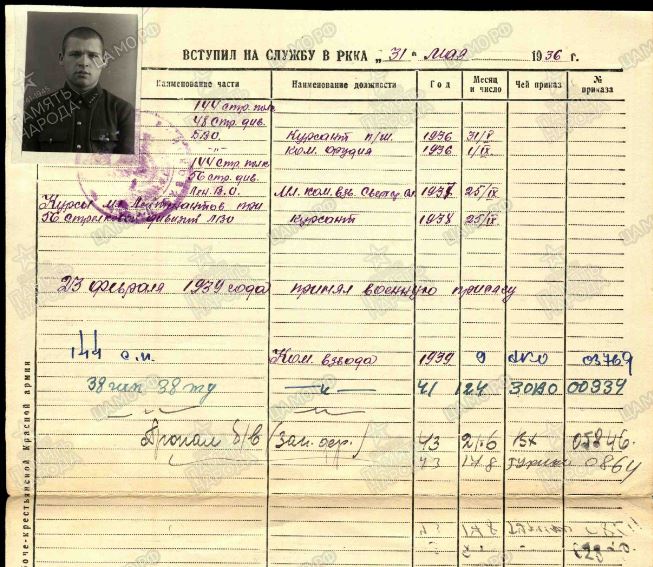 ВСТУПИЛ НА СЛУЖБУ В РККА „ 31 " мая 1936 г.
Наименование части Наименование должности Год Месяц и число Чей приказ № приказа
144 стр. полк
48 стр. див.
БВО. Курсант п/ш. 1936 31/V
-"- Ком. орудия 1936 1/IX.
144 стр. полк
56 стр. див.
Лен. В.О. Мл. ком. взв. 1937 25/IX.
Курсы мл. Лейтенантов при
56 Стрелковой дивизии ЛВО курсант 1938 25/IX.
23 февраля 1939 года принял военную присягу
144 с.п. Ком. взвода 1939 9 ЛКО 03769
38 тд -"- 41 124 ЗОВО 00339
-"- -"-
Пропал б/в 43 21.6 ВХ 05846.
43 14.8 0864
роче-крестьянской Красной армии
ПАМЯТЬ НАРОДА
ЦАМО.РФ